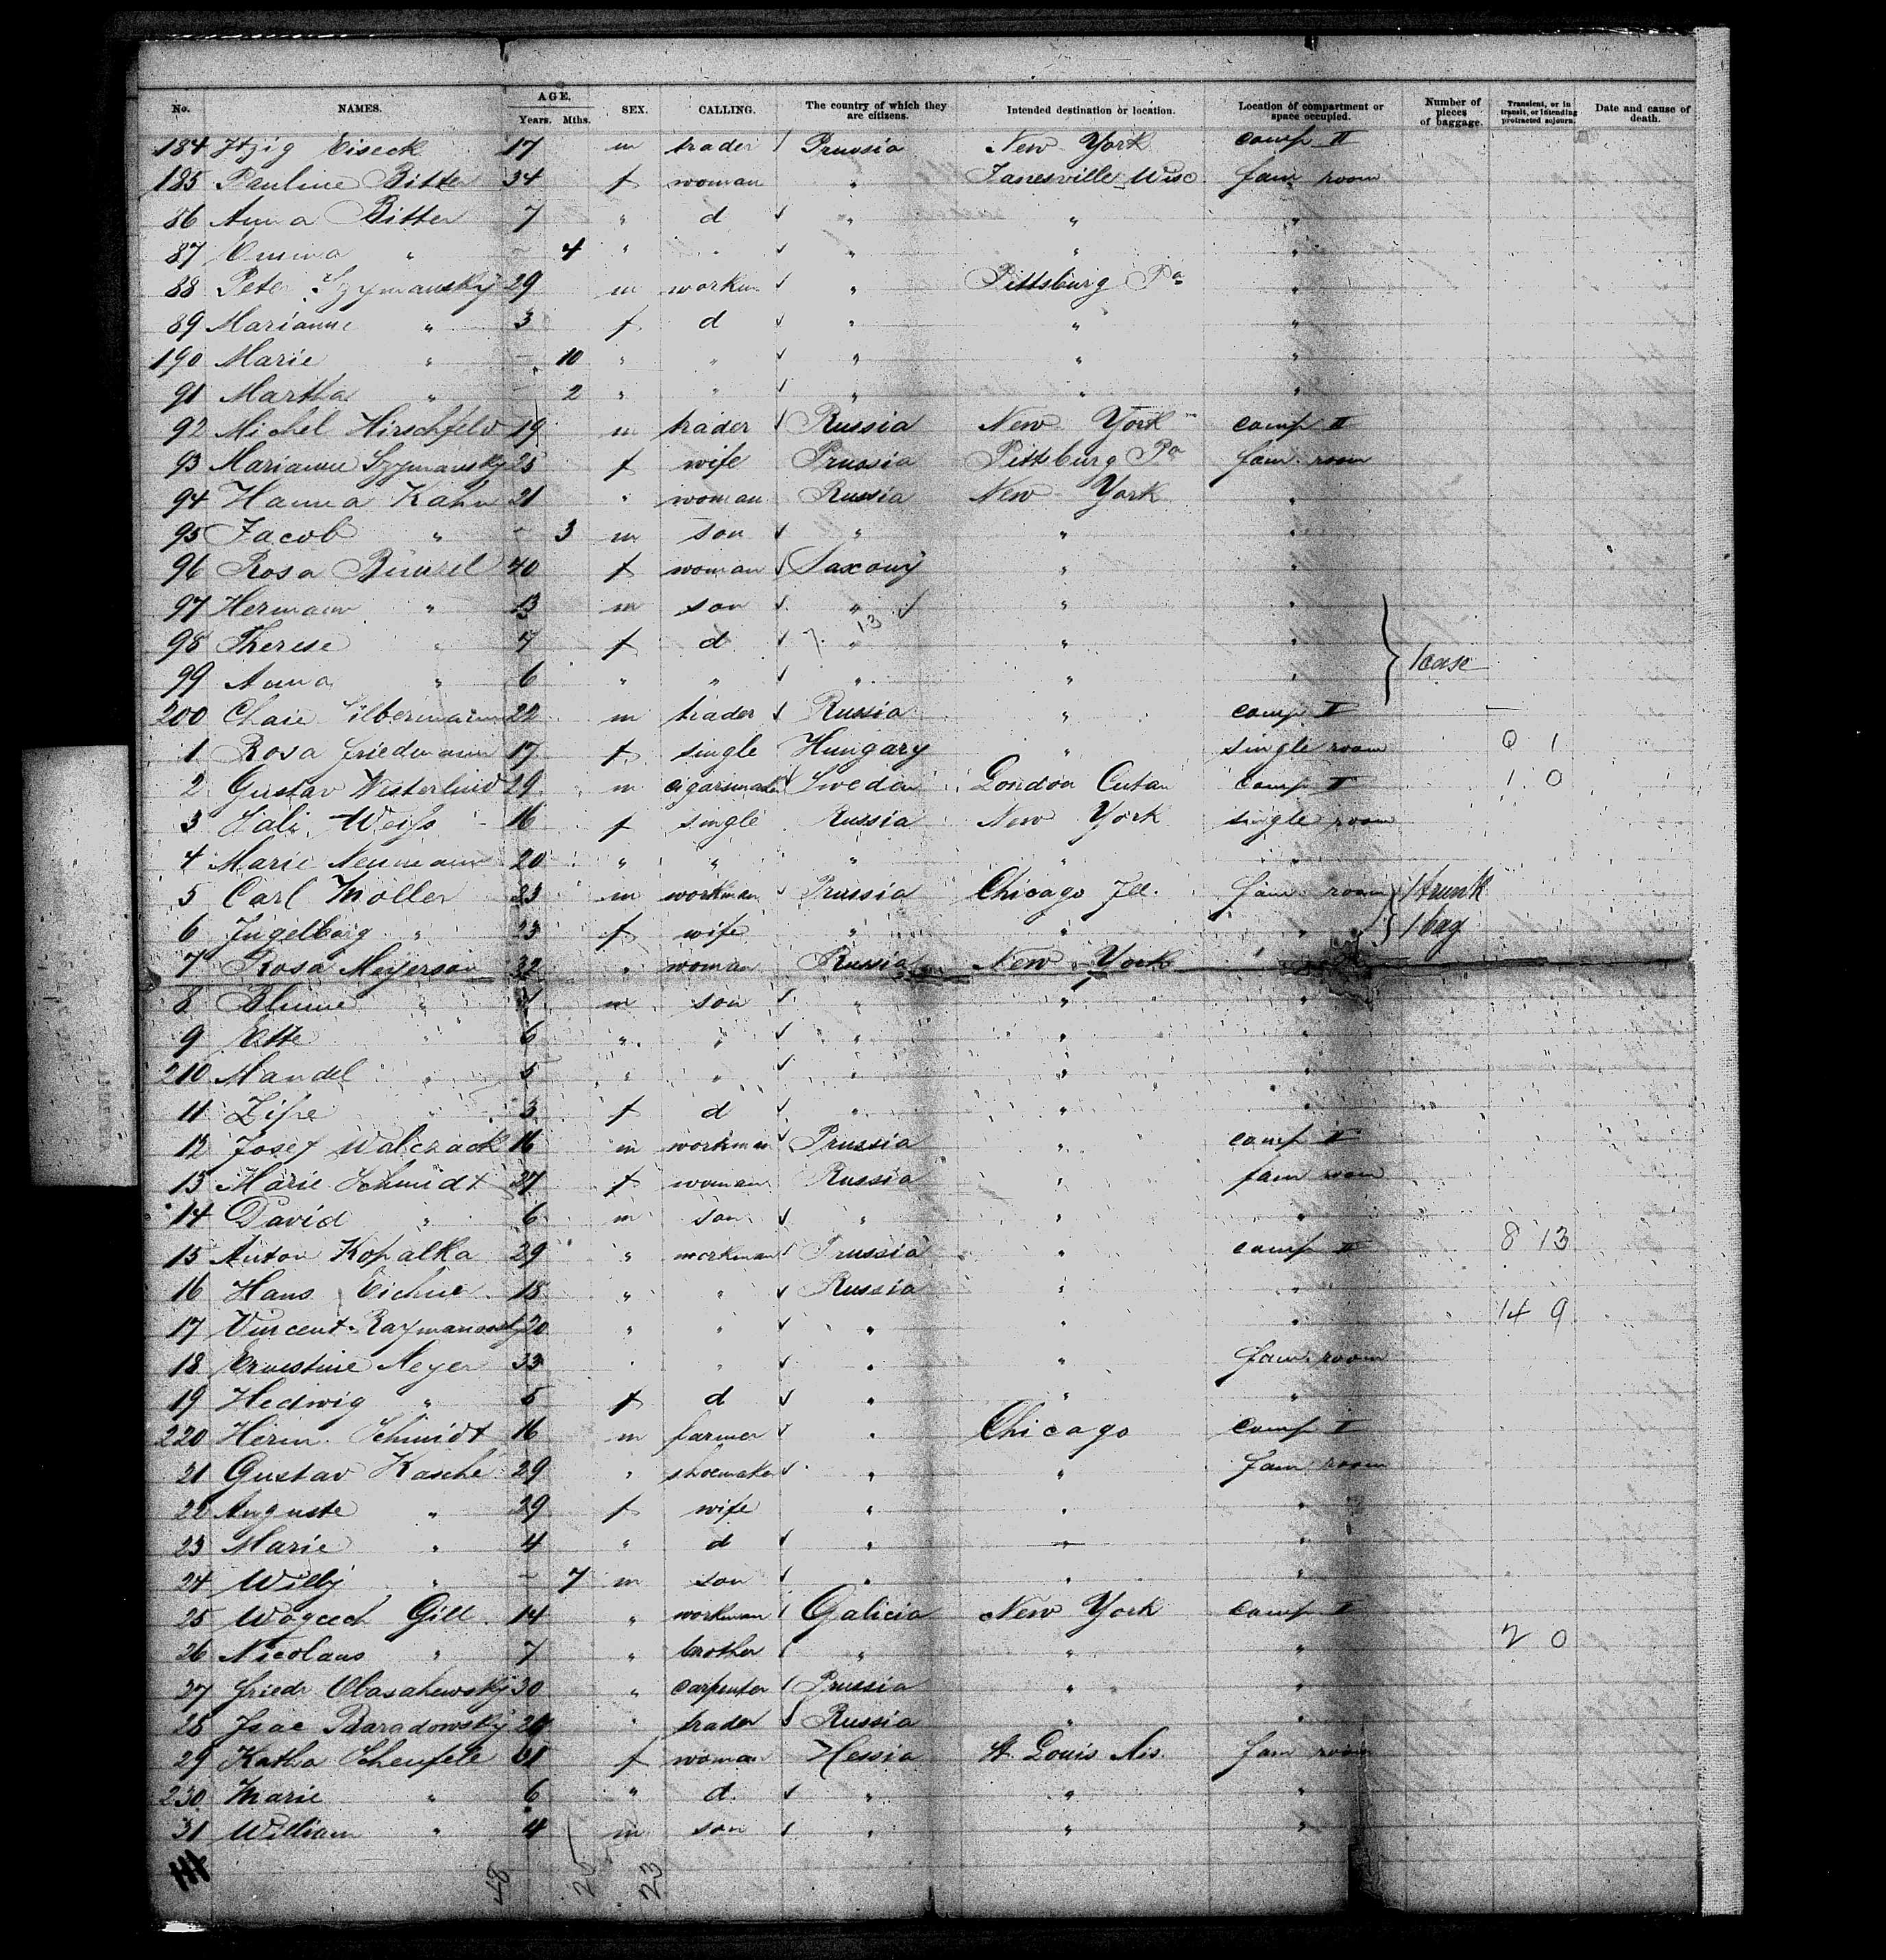 No. NAMES. AGE. Years. Mths. SEX. CALLING. The country of which they are citizens. Intended destination or location. Location of compartment or space occupied. Number of pieces of baggage. Transient, or in transit, or intending protracted sojourn. Date and cause of death.
184 Itzig Eiseck 17 m trader Prussia New York comp II
185 Pauline Bitter 34 f woman " Janesville Wisc fam room
86 Anna Bitter 7 " d " " "
87 Emma " - 4 " " " " "
88 Peter Szymansky 29 m workm " Pittsburg Pa "
89 Marianne " 3 f d " " "
190 Marie " - 10 " " " " "
91 Martha " - 2 " " " " "
92 Michel Hirschfeld 19 m trader Russia New York comp II
93 Marianne Szymansky 25 f wife Prussia Pittsburg Pa fam. room
94 Hanna Kahn 21 " woman Russia New York "
95 Jacob " - 3 m son " " "
96 Rosa 40 f woman Saxony " "
97 Hermann " 13 m son " " "
98 Therese " 7 f d " " "
99 Anna " 6 " " " " " 1 case
200 Chaie Silbermann 22 m trader Russia " comp II
1 Rosa Friedmann 17 f single Hungary " single room 0 1
2 Gustav Westerlund 29 m cigarsmaker Sweden London comp II 1 0
3 Sali Weiss 16 f single Russia New York single room
4 Marie Neumann 20 " " " " "
5 Carl Möller 23 m workman Prussia Chicago Ill. fam room 1 trunk
6 Ingelborg " 23 f wife " " " 1 bag
7 Rosa Meyerson 32 " woman Russia New York "
8 Blume " m son " " "
9 Ette " 6 " " " " "
210 Mandel " 5 " " " " "
11 Zipe " 3 f d " " "
12 Josef Walczack 16 m workman Prussia " comp II
13 Marie Schmidt 27 f woman Russia " fam room
14 David " 6 m son " " "
15 Anton Kopalka 29 " workman Prussia " comp II 8 13
16 Hans 18 " " Russia " "
17 Vincent 20 " " " " " 14 9
18 Ernestine Meyer 33 " " " " fam. room
19 Hedwig " 5 f d " " "
220 Herm. Schmidt 16 m farmer " Chicago comp II
21 Gustav Kasche 29 " shoemaker " " fam room
22 Auguste " 29 f wife " " "
23 Marie " 4 " d " " "
24 Willy " - 7 m son " " "
25 Woycech Gill 14 " workman Galicia New York comp II
26 Nicolaus " 7 " brother " " " 2 0
27 Friedr 30 " carpenter Prussia " "
28 Isac Baradowsky " trader Russia " "
29 Katha Scheufele 31 f woman Hessia St. Louis Mis. fam room
230 Marie " 6 " d. " " "
31 William " 4 m son " " "
48 25 23